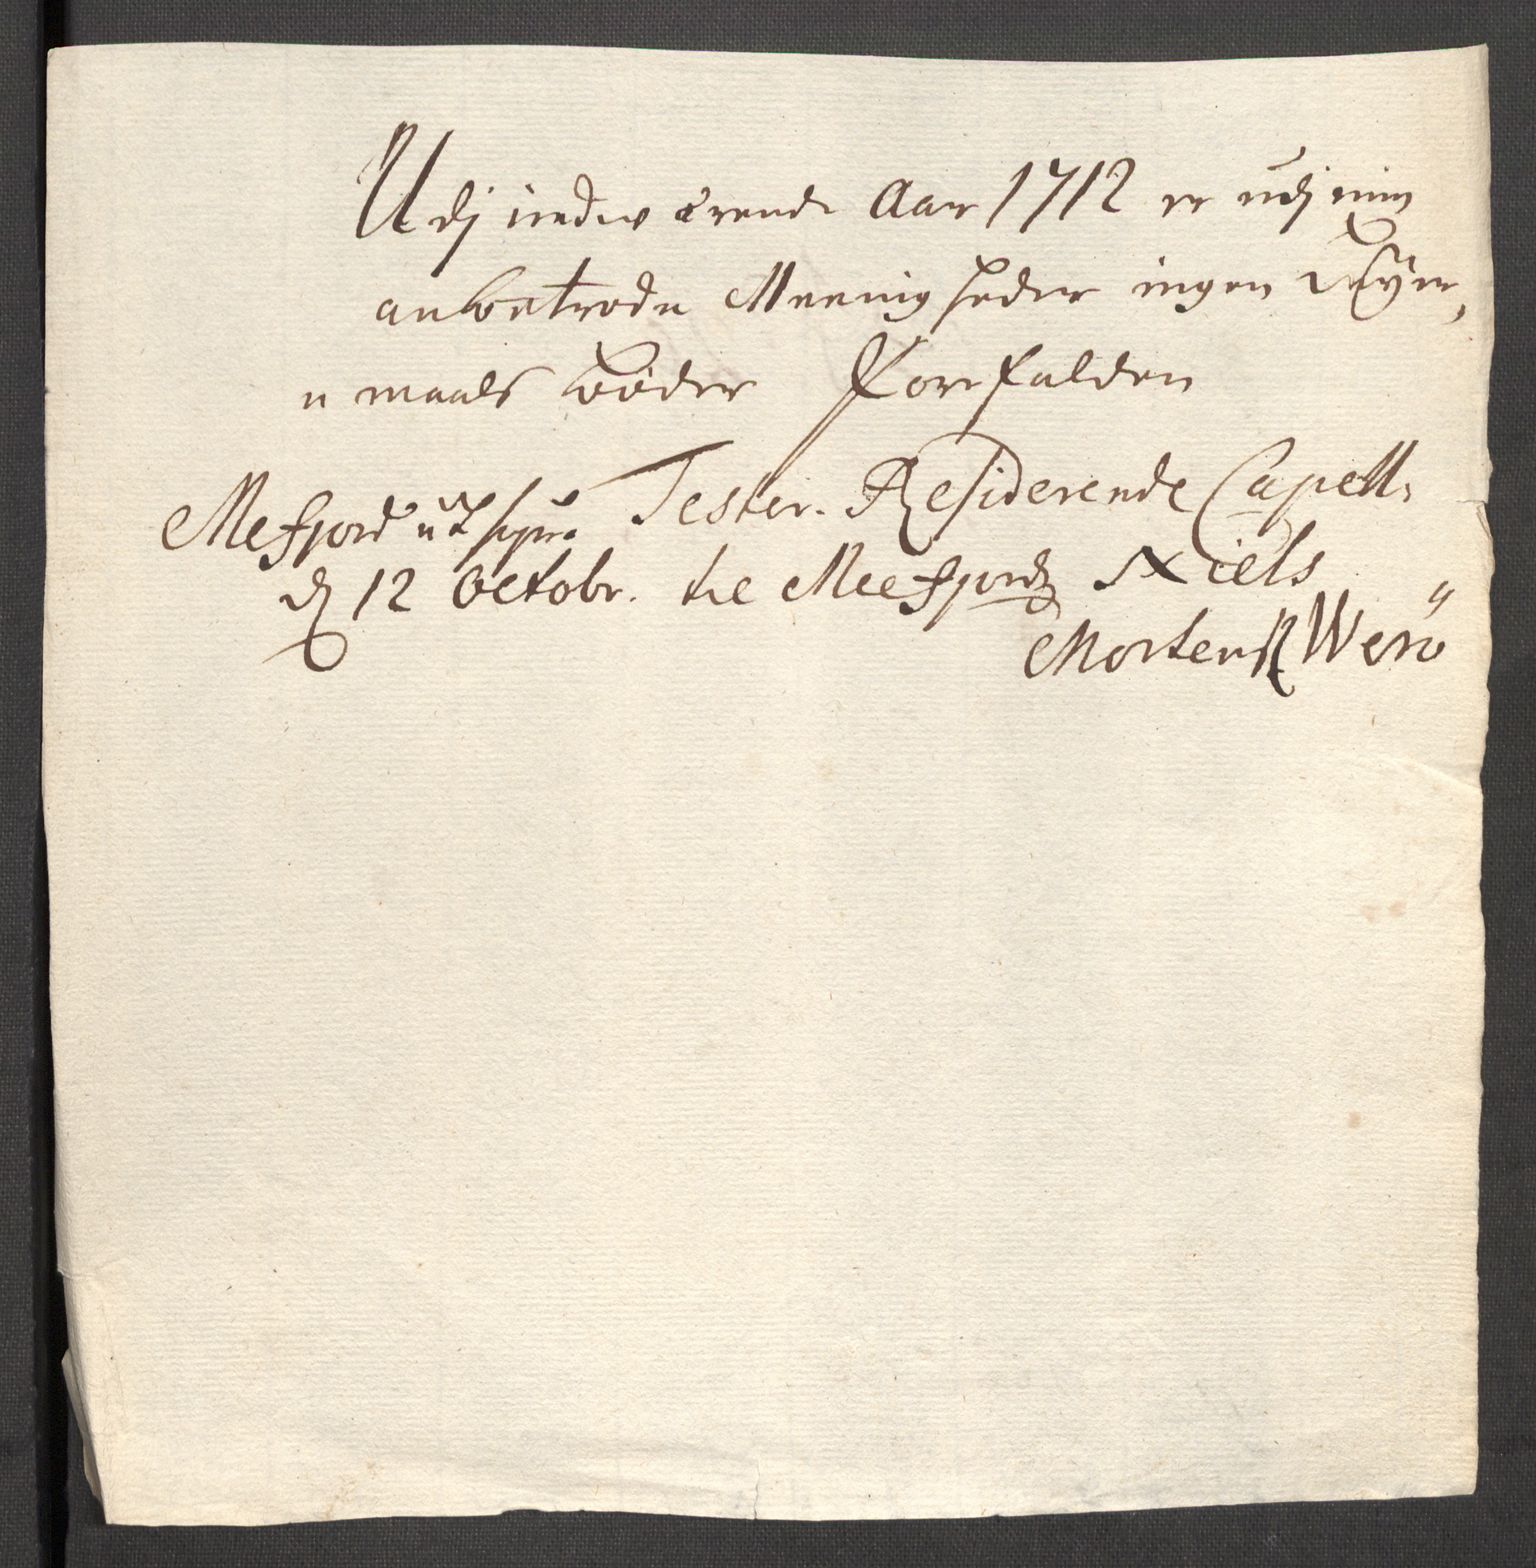 Udj indeværende Aar 1712 er udj min
anbetrode Meenigheder ingen Leÿer,
maals bøder Forefalden
Mefjord ut supra Tester. Residerende Capell:
d 12 Octobr. til Meefjord Niels
Mortenss Werö